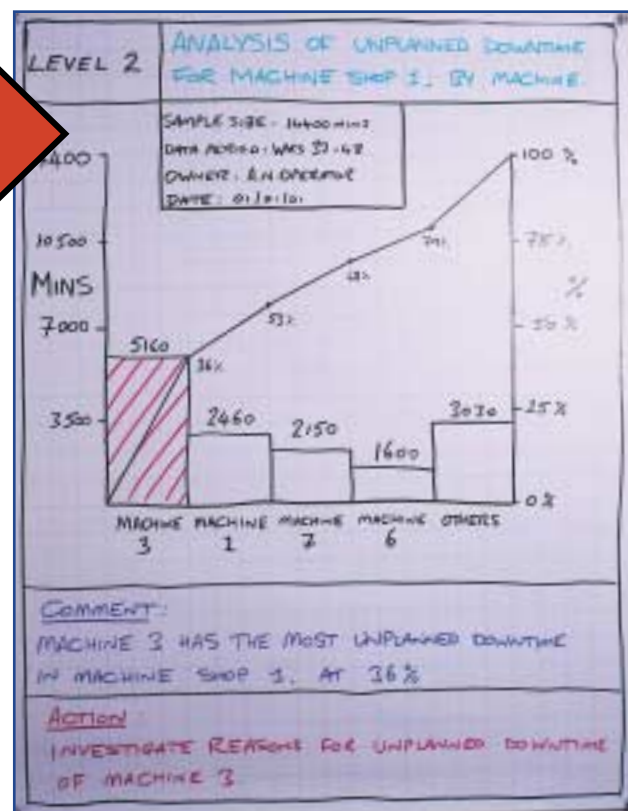 LEVEL 2
ANALYSIS OF UNPLANNED DOWNTIME
FOR MACHINE SHOP 1. BY MACHINE.
SAMPLE SIZE - 14400 MINS
DATA PERIOD: WKS 37-48
OWNER: AN OPERATOR
DATE: 01/01/01
400
100 %
10500
75%
MINS
%
7000
50%
3500
25%
0%
5160
2460
2150
1600
3030
36%
53%
68%
79%
MACHINE 3
MACHINE 1
MACHINE 7
MACHINE 6
OTHERS
COMMENT:
MACHINE 3 HAS THE MOST UNPLANNED DOWNTIME
IN MACHINE SHOP 1. AT 36%
ACTION:
INVESTIGATE REASONS FOR UNPLANNED DOWNTIME
OF MACHINE 3.